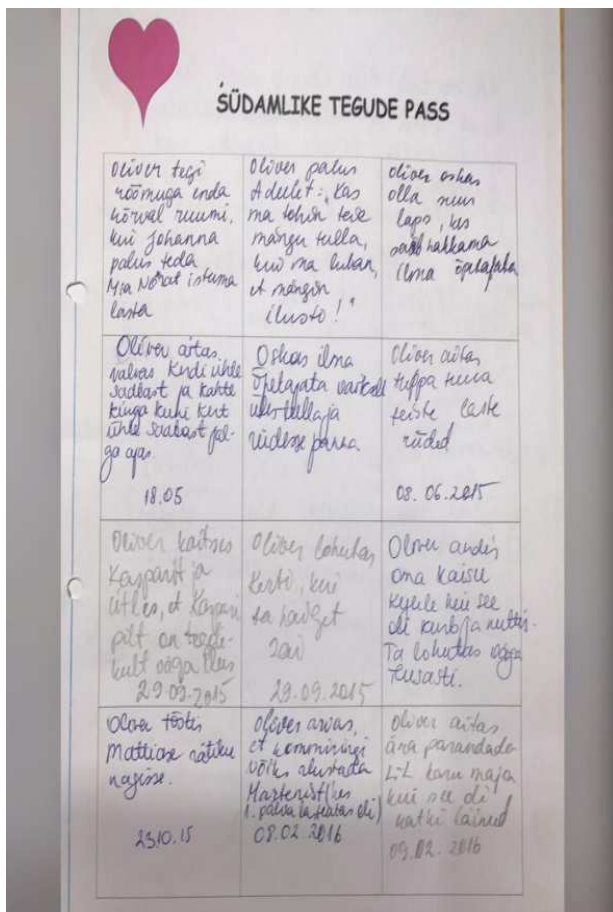 SÜDAMLIKE TEGUDE PASS
Oliver tegi
rõõmuga enda
kõrval ruumi,
kui Johanna
palus teda
Mia Norat istuma
lasta
Oliver palus
Adeelet: "Kas
ma tohin teie
mängu tulla,
kui ma luban,
et mängin
ilusti!"
Oliver oskas
olla suur
laps, kes
saab hakkama
ilma õpetajata
Oliver aitas
valvas Kerdi ühte
saabast ja kahte
kinga kuni Kert
ühte saabast jal-
ga ajas.
18.05
Oskas ilma
õpetajata
riidesse panna
Oliver aitas
tuppa tuua
teiste laste
riided
08.06.2015
Oliver kaitses
Kasparit ja
ütles, et Kaspari
pilt on tege-
kult väga ilus
29.09.2015
Oliver lohutas
Kerti, kui
ta haiget
sai
29.09.2015
Oliver andis
oma kaisu
kui see
oli kurb ja nuttis.
Ta lohutas väga
ilusasti.
Oliver tõstis
Mattiase rätiku
nagisse.
23.10.15
Oliver arvas,
et kommiringi
võiks alustada
1. päeva lasteaias oli)
08.02.2016
Oliver aitas
ära parandada
L-L karu maja
kui see oli
katki läinud
09.02.2016